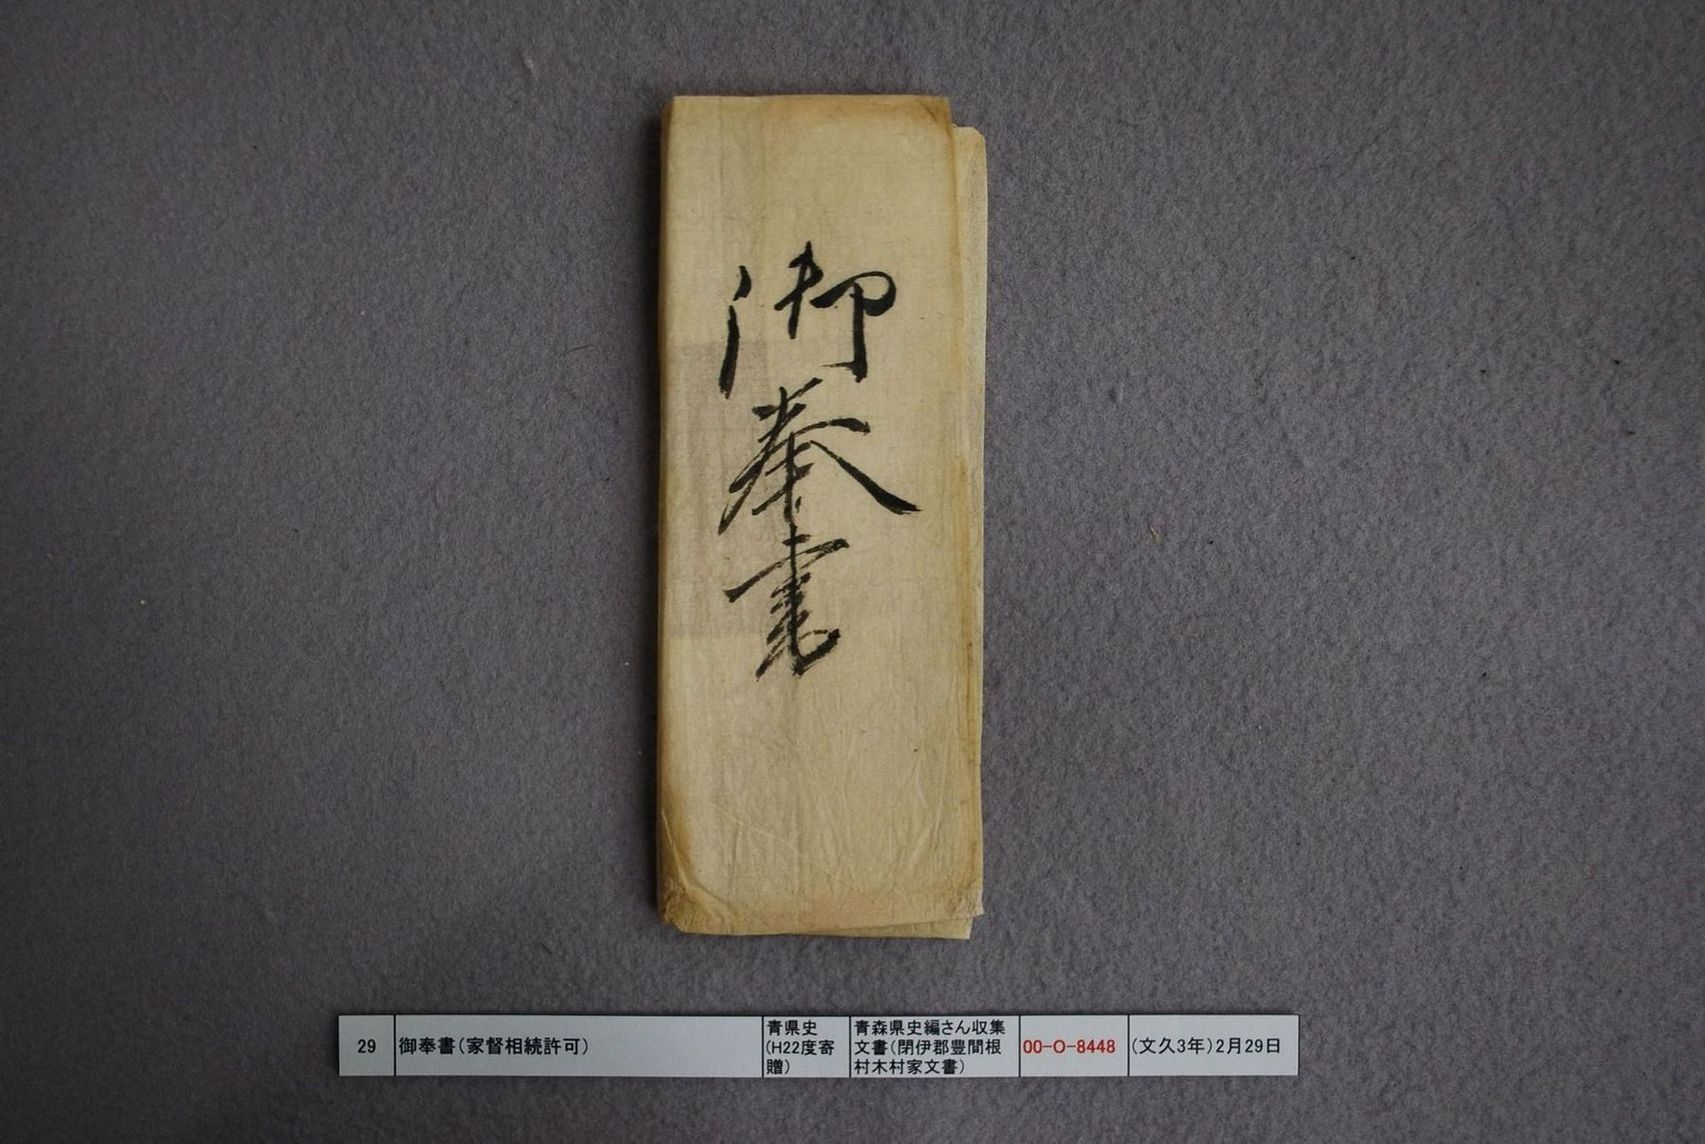 御奉書
29
御奉書(家督相続許可)
青県史
(H22度寄
贈)
青森県史編さん収集
文書(閉伊郡豊間根
村木村家文書)
00-O-8448
(文久3年)2月29日